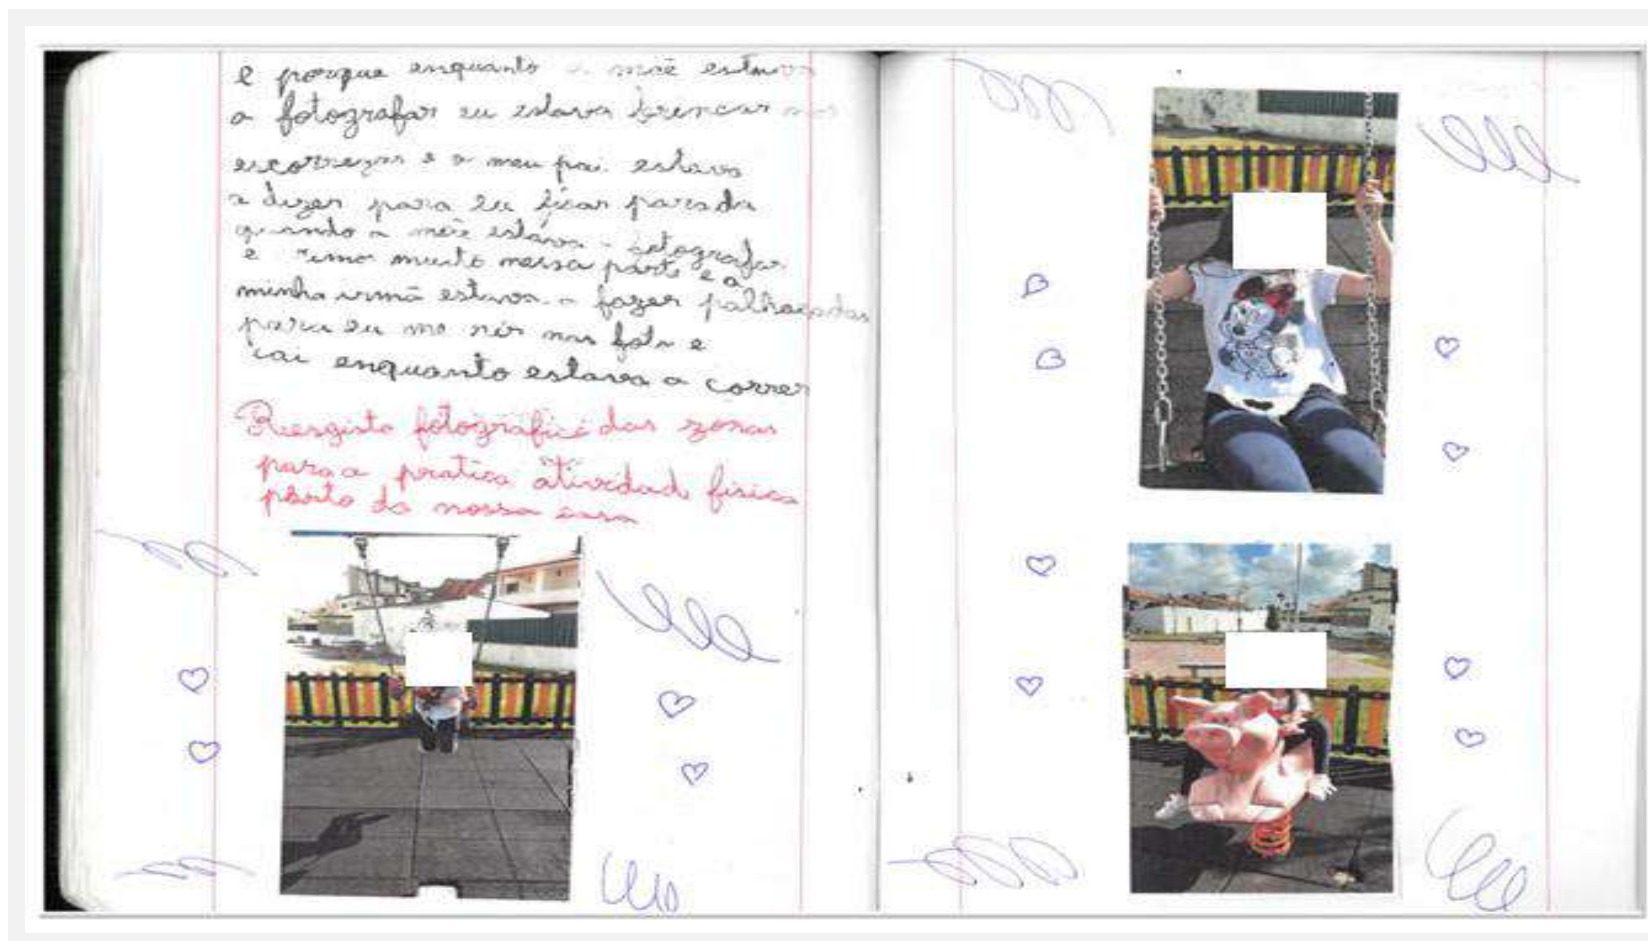 e porque enquanto a mãe estava
a fotografar eu estava brincar nos
escorregas e o meu pai estava
a dizer para eu ficar parada
quando a mãe estava a fotografar
e rimos muito nessa parte e a
minha irmã estava a fazer palhaçadas
para eu me rir nas foto e
cai enquanto estava a correr
Resgisto fotográfico das zonas
para a pratica atividad fisica
pêrto da nossa casa